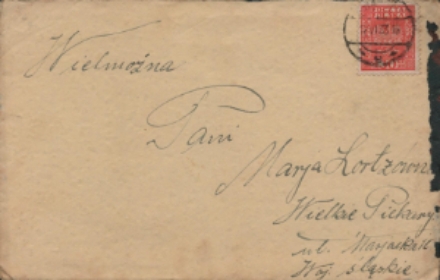 Wielmożna
Pani
Marja Lortzowna
Wielkie Piekary
ul. Marjacka
Woj. śląskie